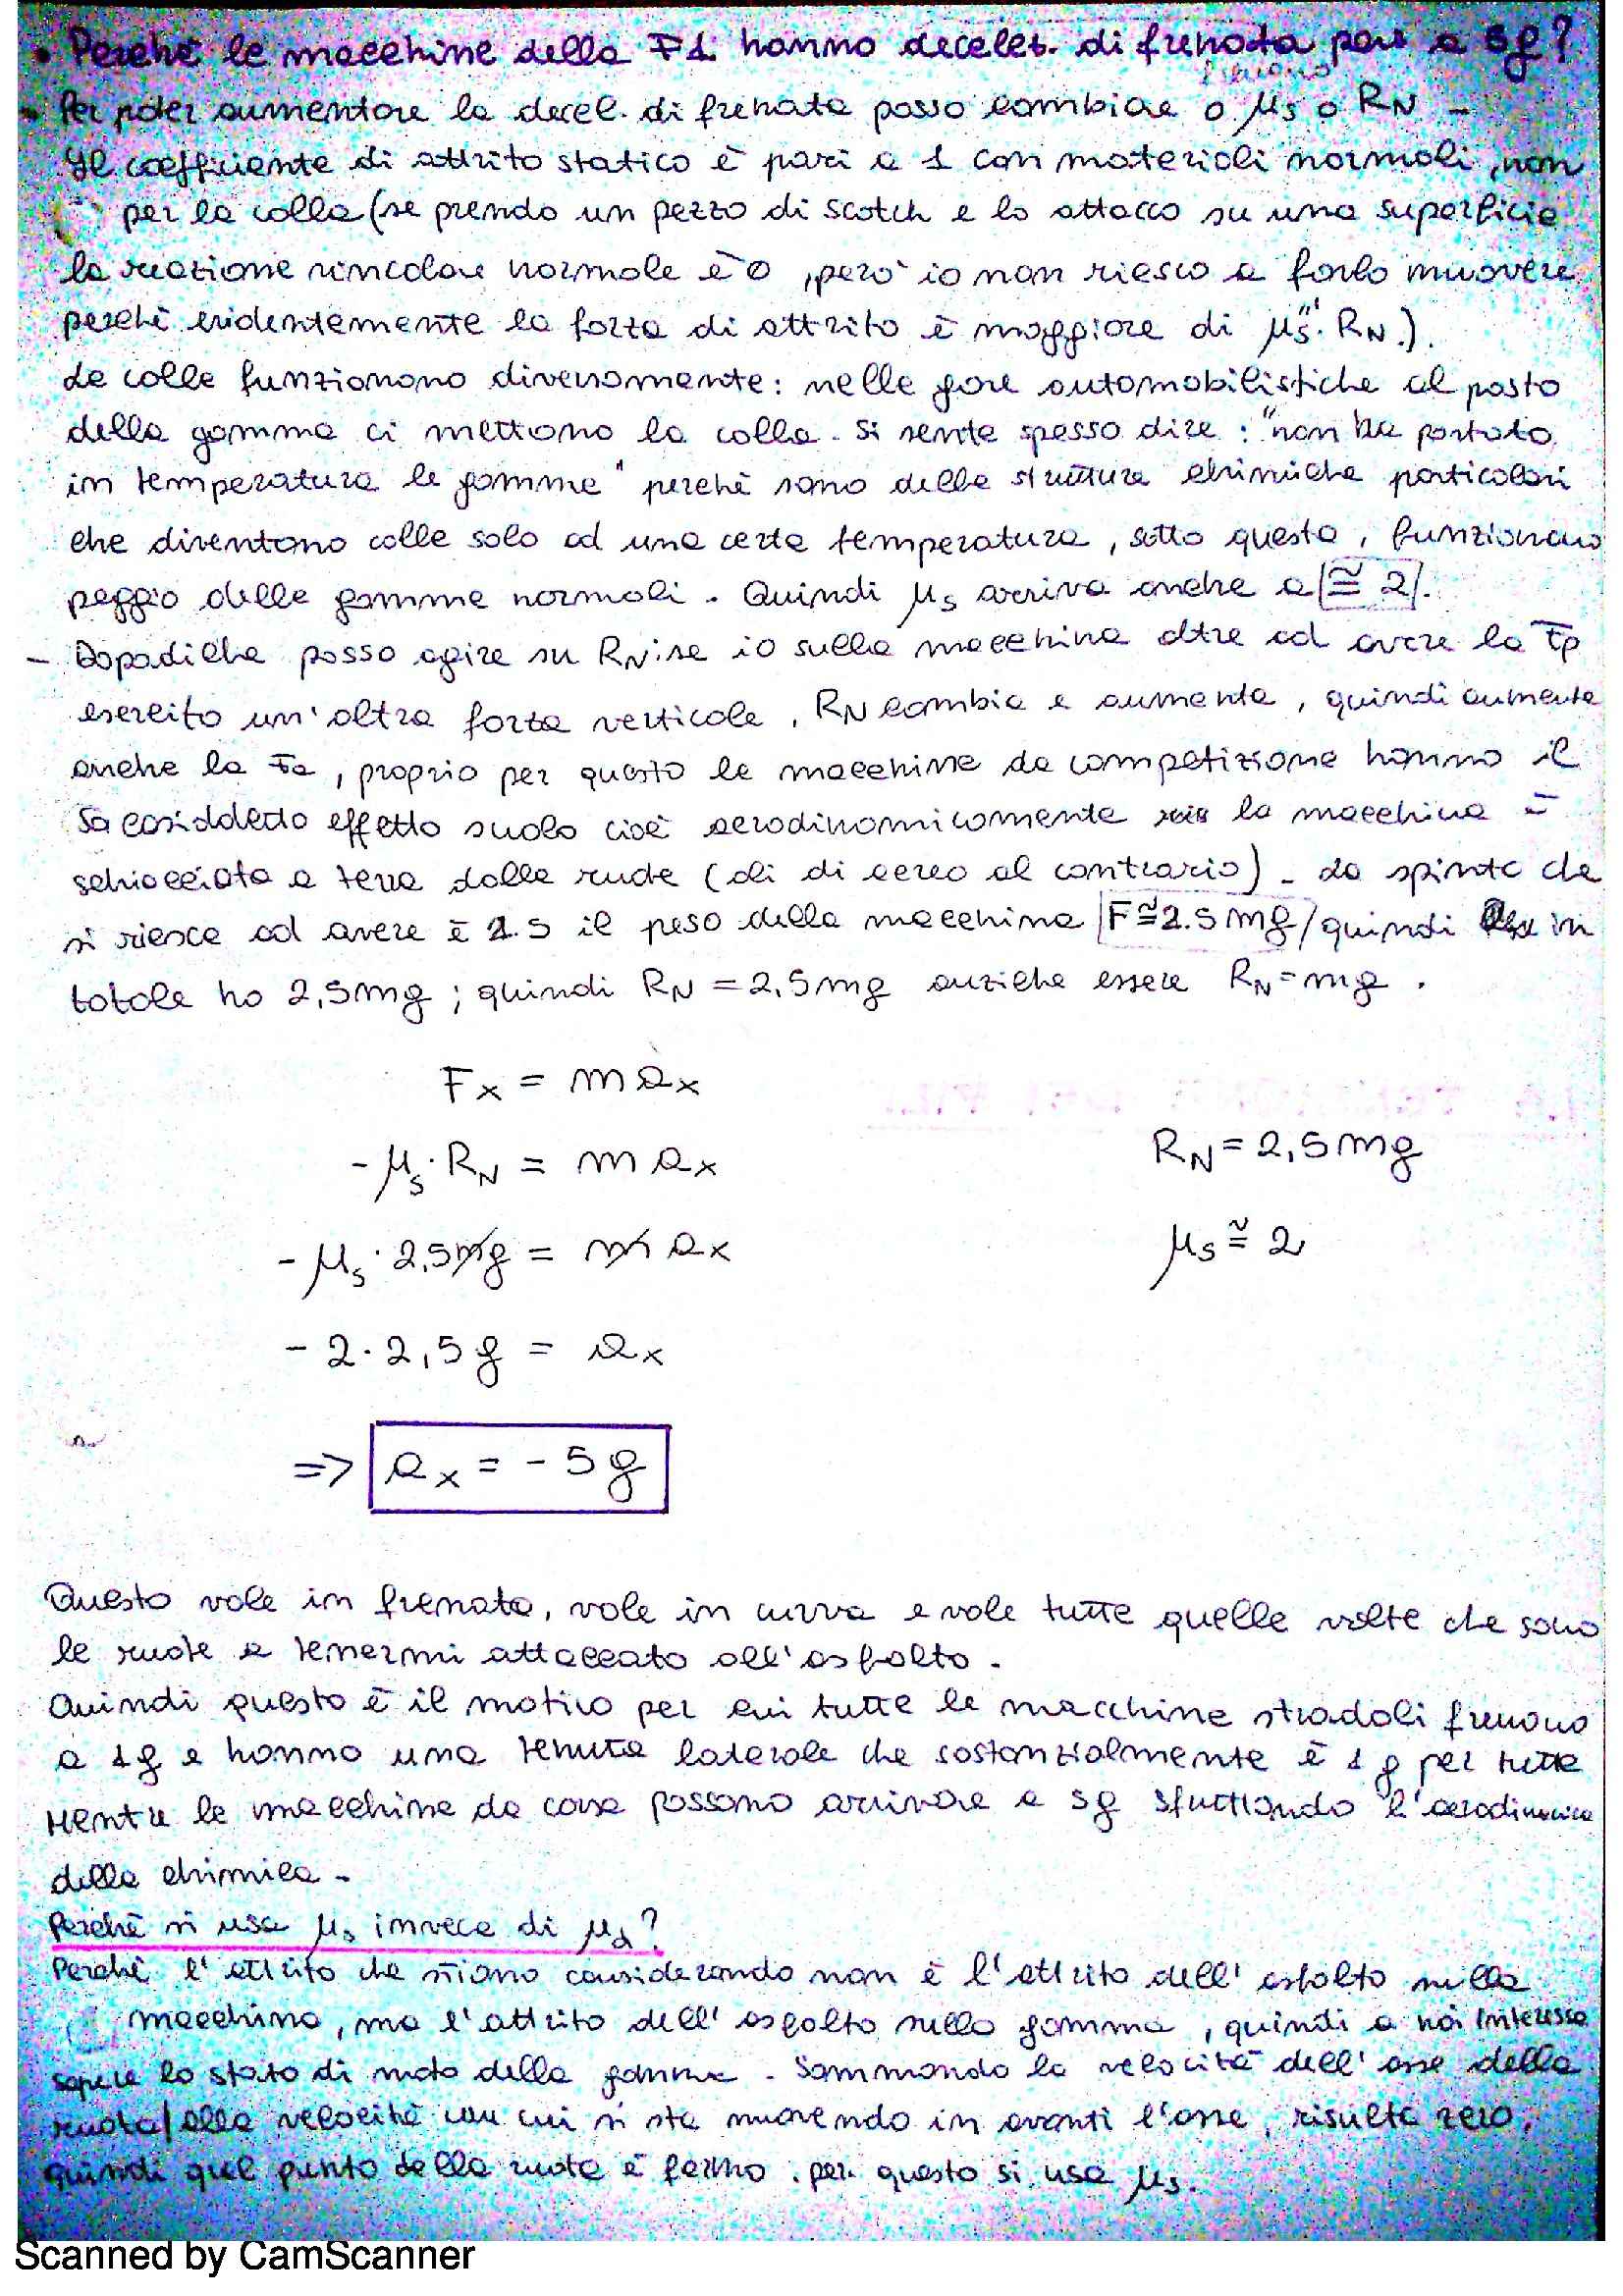 • Perchè le macchine della F1 hanno deceler. di frenata pari a 5g?
- Per poter aumentare la decel. di frenata posso cambiare o μs o RN -
Il coefficiente di attrito statico è pari a 1 con materiali normali, non
per la colla (se prendo un pezzo di scotch e lo attacco su una superficie
la reazione vincolare normale è 0, però io non riesco a farlo muovere
perchè evidentemente la forza di attrito è maggiore di "μs"· RN.).
Le colle funzionano diversamente: nelle gare automobilistiche al posto
della gomma ci mettono la colla. Si sente spesso dire: "non ha portato
in temperatura le gomme" perchè sono delle strutture chimiche particolari
che diventano colle solo ad una certa temperatura, sotto questa, funzionano
peggio delle gomme normali. Quindi μs arriva anche a ≅ 2.
- Dopodichè posso agire su RN: se io sulla macchina oltre ad avere la Fp
esercito un'altra forza verticale, RN cambia e aumenta, quindi aumenta
anche la Fa, proprio per questo le macchine da competizione hanno il
cosiddetto effetto suolo cioè aerodinamicamente la macchina è
schiacciata a terra dalle ruote (ali di aereo al contrario) - La spinta che
si riesce ad avere è 1.5 il peso della macchina F≅2.5mg quindi in
totale ho 2,5mg ; quindi RN = 2,5mg anzichè essere RN=mg .
Fx = m ax
- μs · RN = m ax
RN = 2,5mg
- μs · 2,5mg = m ax
μs ≅ 2
- 2 · 2,5g = ax
=> ax = - 5g
Questo vale in frenata, vale in curva e vale tutte quelle volte che sono
le ruote a tenermi attaccato all'asfalto.
Quindi questo è il motivo per cui tutte le macchine stradali frenano
a 1g e hanno una tenuta laterale che sostanzialmente è 1g per tutte
mentre le macchine da corsa possono arrivare a 5g sfruttando l'aerodinamica
della chimica -
Perchè si usa μs invece di μd?
Perchè l'attrito che stiamo considerando non è l'attrito dell'asfalto sulla
macchina, ma l'attrito dell'asfalto sulla gomma, quindi a noi interessa
sapere lo stato di moto della gomma. Sommando la velocità dell'asse della
ruota/alla velocità con cui si sta muovendo in avanti l'asse, risulta zero,
quindi quel punto della ruota è fermo. per questo si usa μs.
Scanned by CamScanner